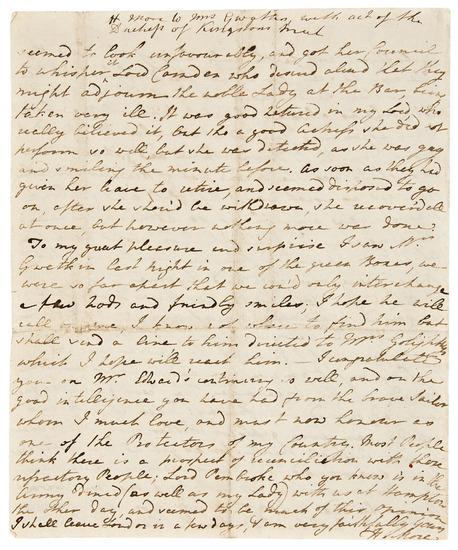 H More to Mrs Gwatkin with acct of the
Duchess of Kingstons trial
seemed to look unfavourably, and got her Council
to whisper Lord Camden who desired aloud "let they
might adjourn the noble Lady at the Bar, being
taken very ill. It was good natured in my Lord who
really believed it, but tho a good Actress she did not
perform so well but she was detected, as she was gay
and smiling the minute before. As soon as they had
given her leave to retire and seemed disposed to go
on, after she shou'd be withdrawn, she recover'd all
at once, but however nothing more was done.
To my great pleasure and surprise I saw Mr
Gwatkin last night in one of the green Boxes, we
were so far apart that we cou'd only interchange
a few nods and friendly smiles, I hope he will
call on me, I know not where to find him but
shall send a line to him directed to Mrs
which I hope will reach him — I congratulate
you on Mr. Edward's continuing so well, and on the
good intelligence you have had from the brave Sailor
whom I much love, and must now honour as
one of the Protectors of my Country. Most People
think there is a prospect of reconciliation with these
refractory People; Lord Pembroke who you know is in the
Army dined (as well as my Lady) with us at Hampton
the other day, and seemed to be much of this opinion
I shall leave London in a few days, I am very faithfully yours
H. More